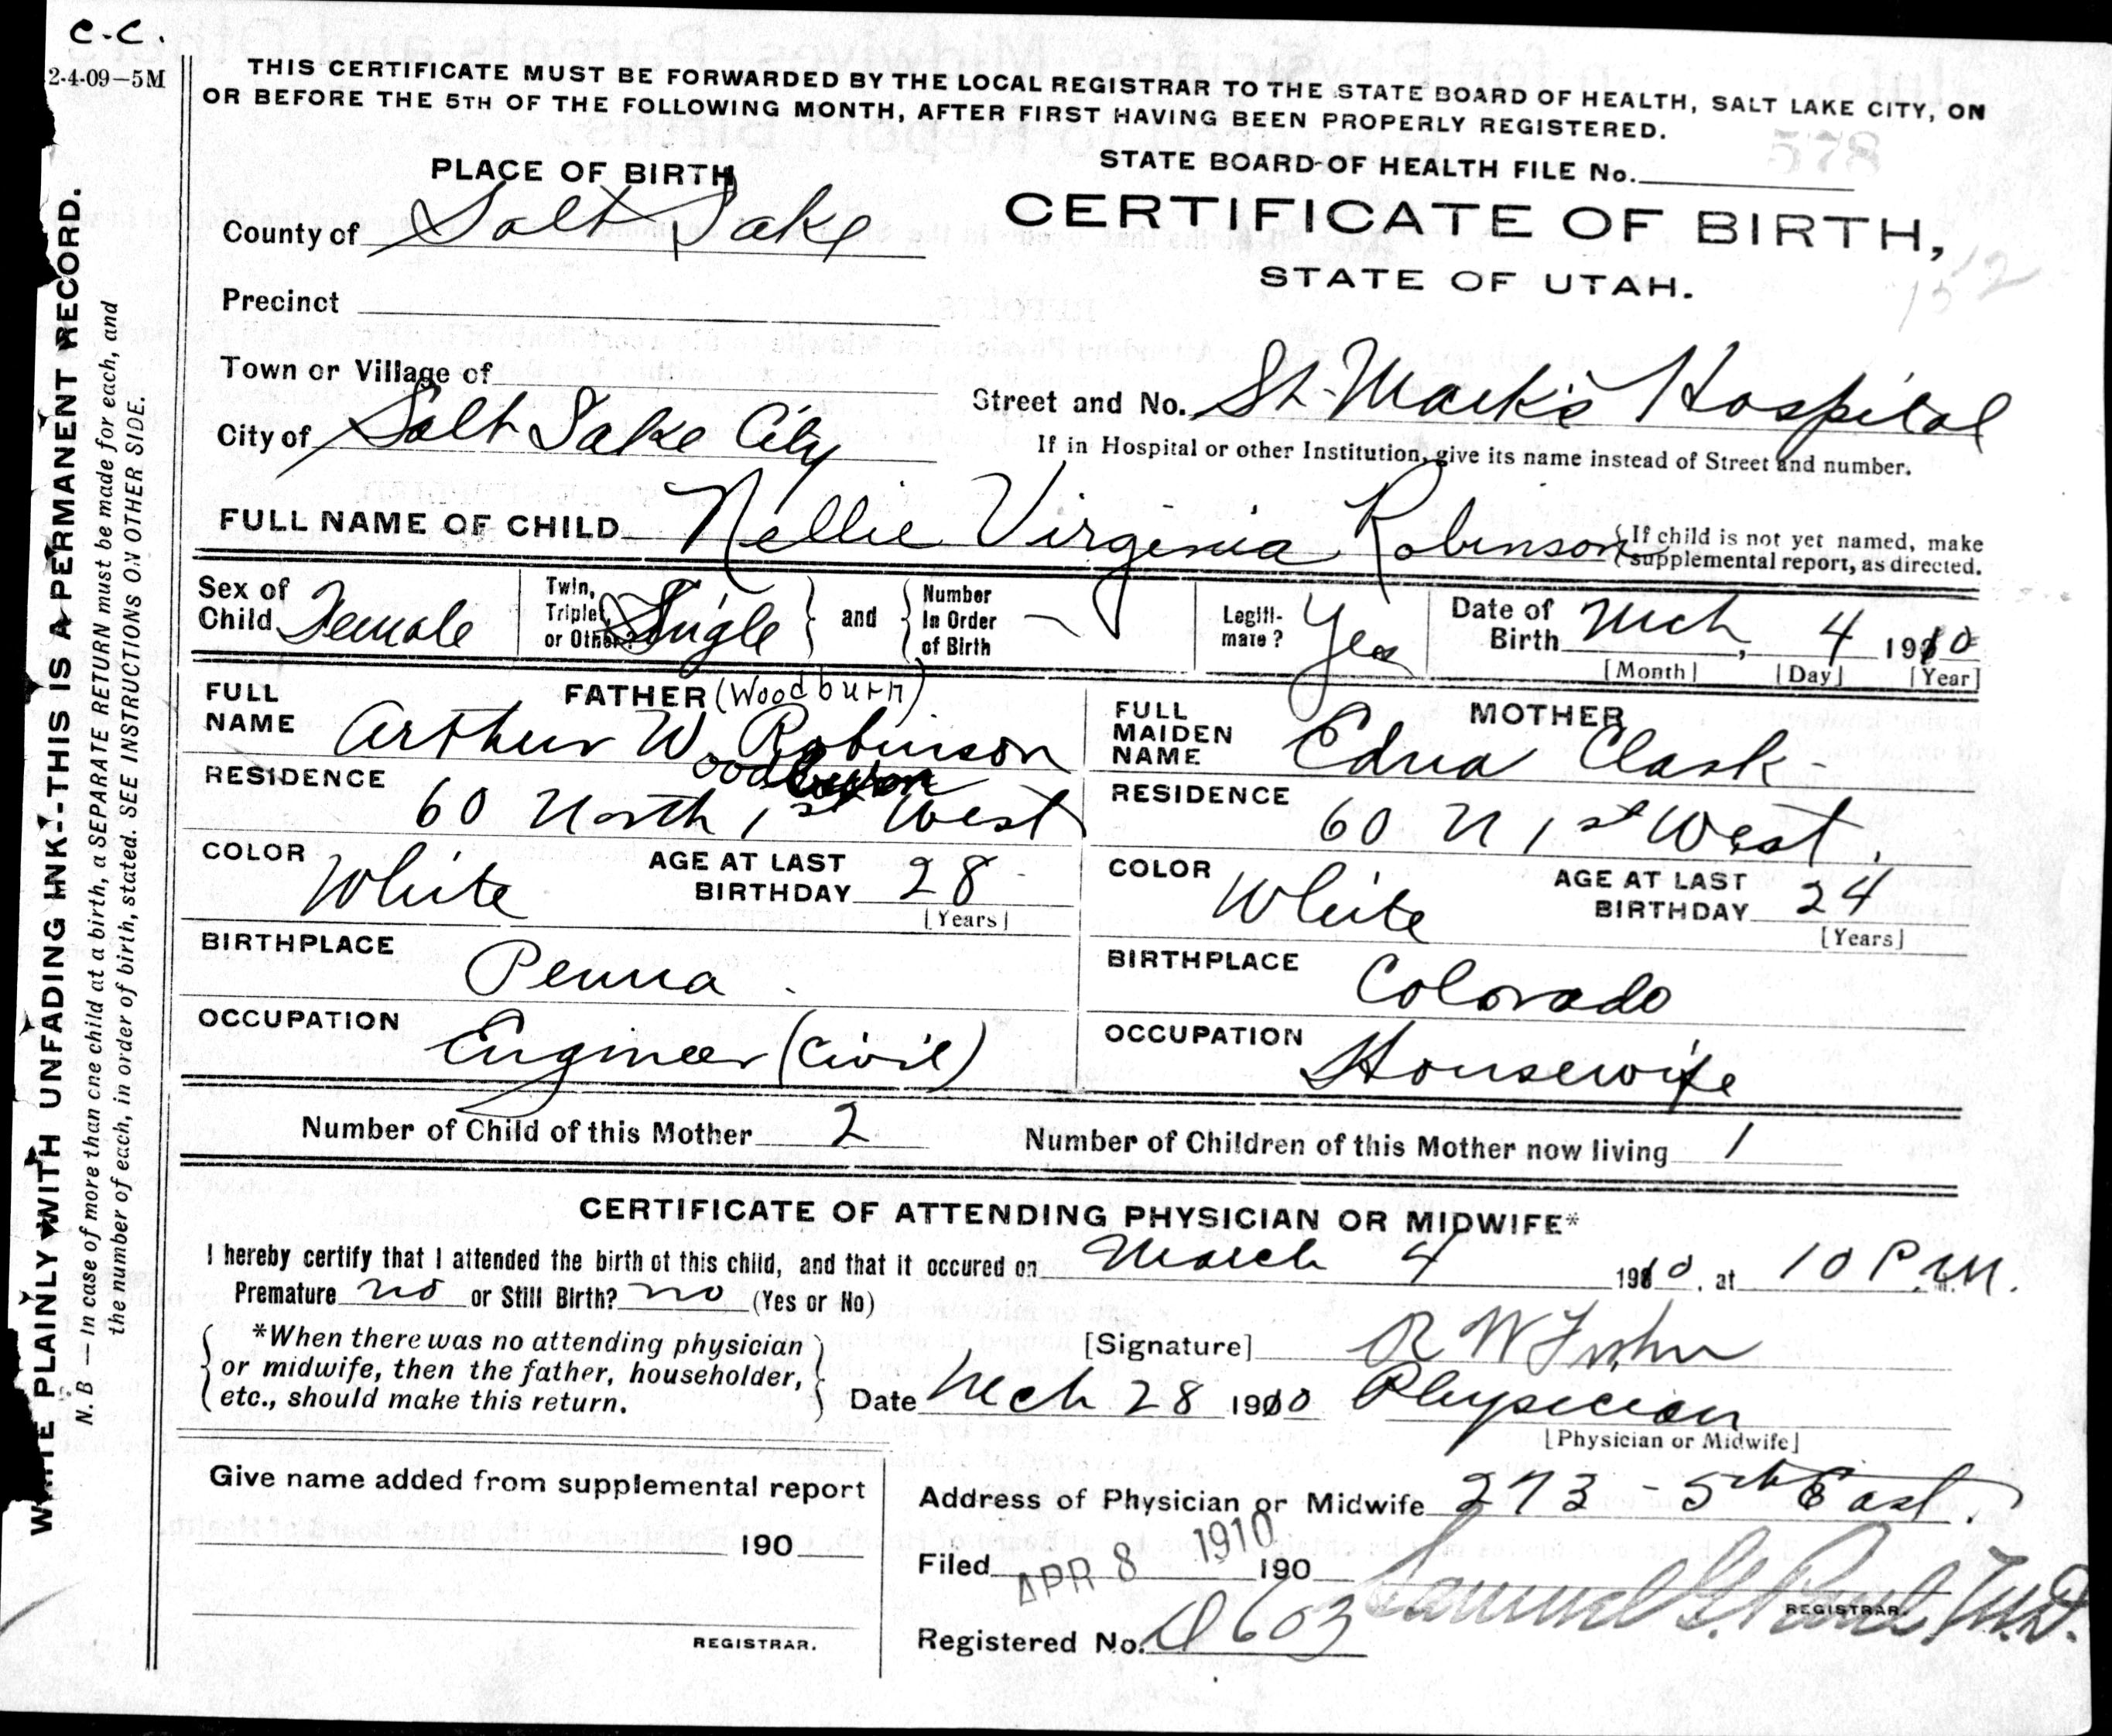 C.C.
2-4-09-5M
THIS CERTIFICATE MUST BE FORWARDED BY THE LOCAL REGISTRAR TO THE STATE BOARD OF HEALTH, SALT LAKE CITY, ON
OR BEFORE THE 5TH OF THE FOLLOWING MONTH, AFTER FIRST HAVING BEEN PROPERLY REGISTERED.
578
STATE BOARD OF HEALTH FILE No.
PLACE OF BIRTH
CERTIFICATE OF BIRTH,
STATE OF UTAH.
County of Salt Lake
Precinct
Town or Village of
Street and No. St. Mark's Hospital
City of Salt Lake City
If in Hospital or other Institution, give its name instead of Street and number.
FULL NAME OF CHILD Nellie Virginia Robinson
{If child is not yet named, make
supplemental report, as directed.
Sex of Child Female
Twin, Triplet or Other? Single } and { Number In Order of Birth
Legitimate? Yes
Date of Birth Mch, 4 1910
[Month] [Day] [Year]
FATHER (Woodburn)
FULL NAME Arthur W. Robinson
MOTHER
FULL MAIDEN NAME Edna Clark
RESIDENCE 60 North 1st West
RESIDENCE 60 N 1st West.
COLOR White AGE AT LAST BIRTHDAY 28
[Years]
COLOR White AGE AT LAST BIRTHDAY 24
[Years]
BIRTHPLACE Penna.
BIRTHPLACE Colorado
OCCUPATION Engineer (Civil)
OCCUPATION Housewife
Number of Child of this Mother 2 Number of Children of this Mother now living 1
CERTIFICATE OF ATTENDING PHYSICIAN OR MIDWIFE*
I hereby certify that I attended the birth of this child, and that it occured on March 4 1910, at 10 P.M.
Premature no or Still Birth? no (Yes or No)
{*When there was no attending physician
or midwife, then the father, householder,
etc., should make this return.}
[Signature] R W Fisher
Date Mch 28 1910 Physician
[Physician or Midwife]
Give name added from supplemental report
190
REGISTRAR.
Address of Physician or Midwife 273 - 5th East.
Filed APR 8 1910 190
REGISTRAR.
Samuel G. Paul, M.D.
Registered No. 603
WRITE PLAINLY WITH UNFADING INK--THIS IS A PERMANENT RECORD.
N. B — In case of more than one child at a birth, a SEPARATE RETURN must be made for each, and
the number of each, in order of birth, stated. SEE INSTRUCTIONS ON OTHER SIDE.